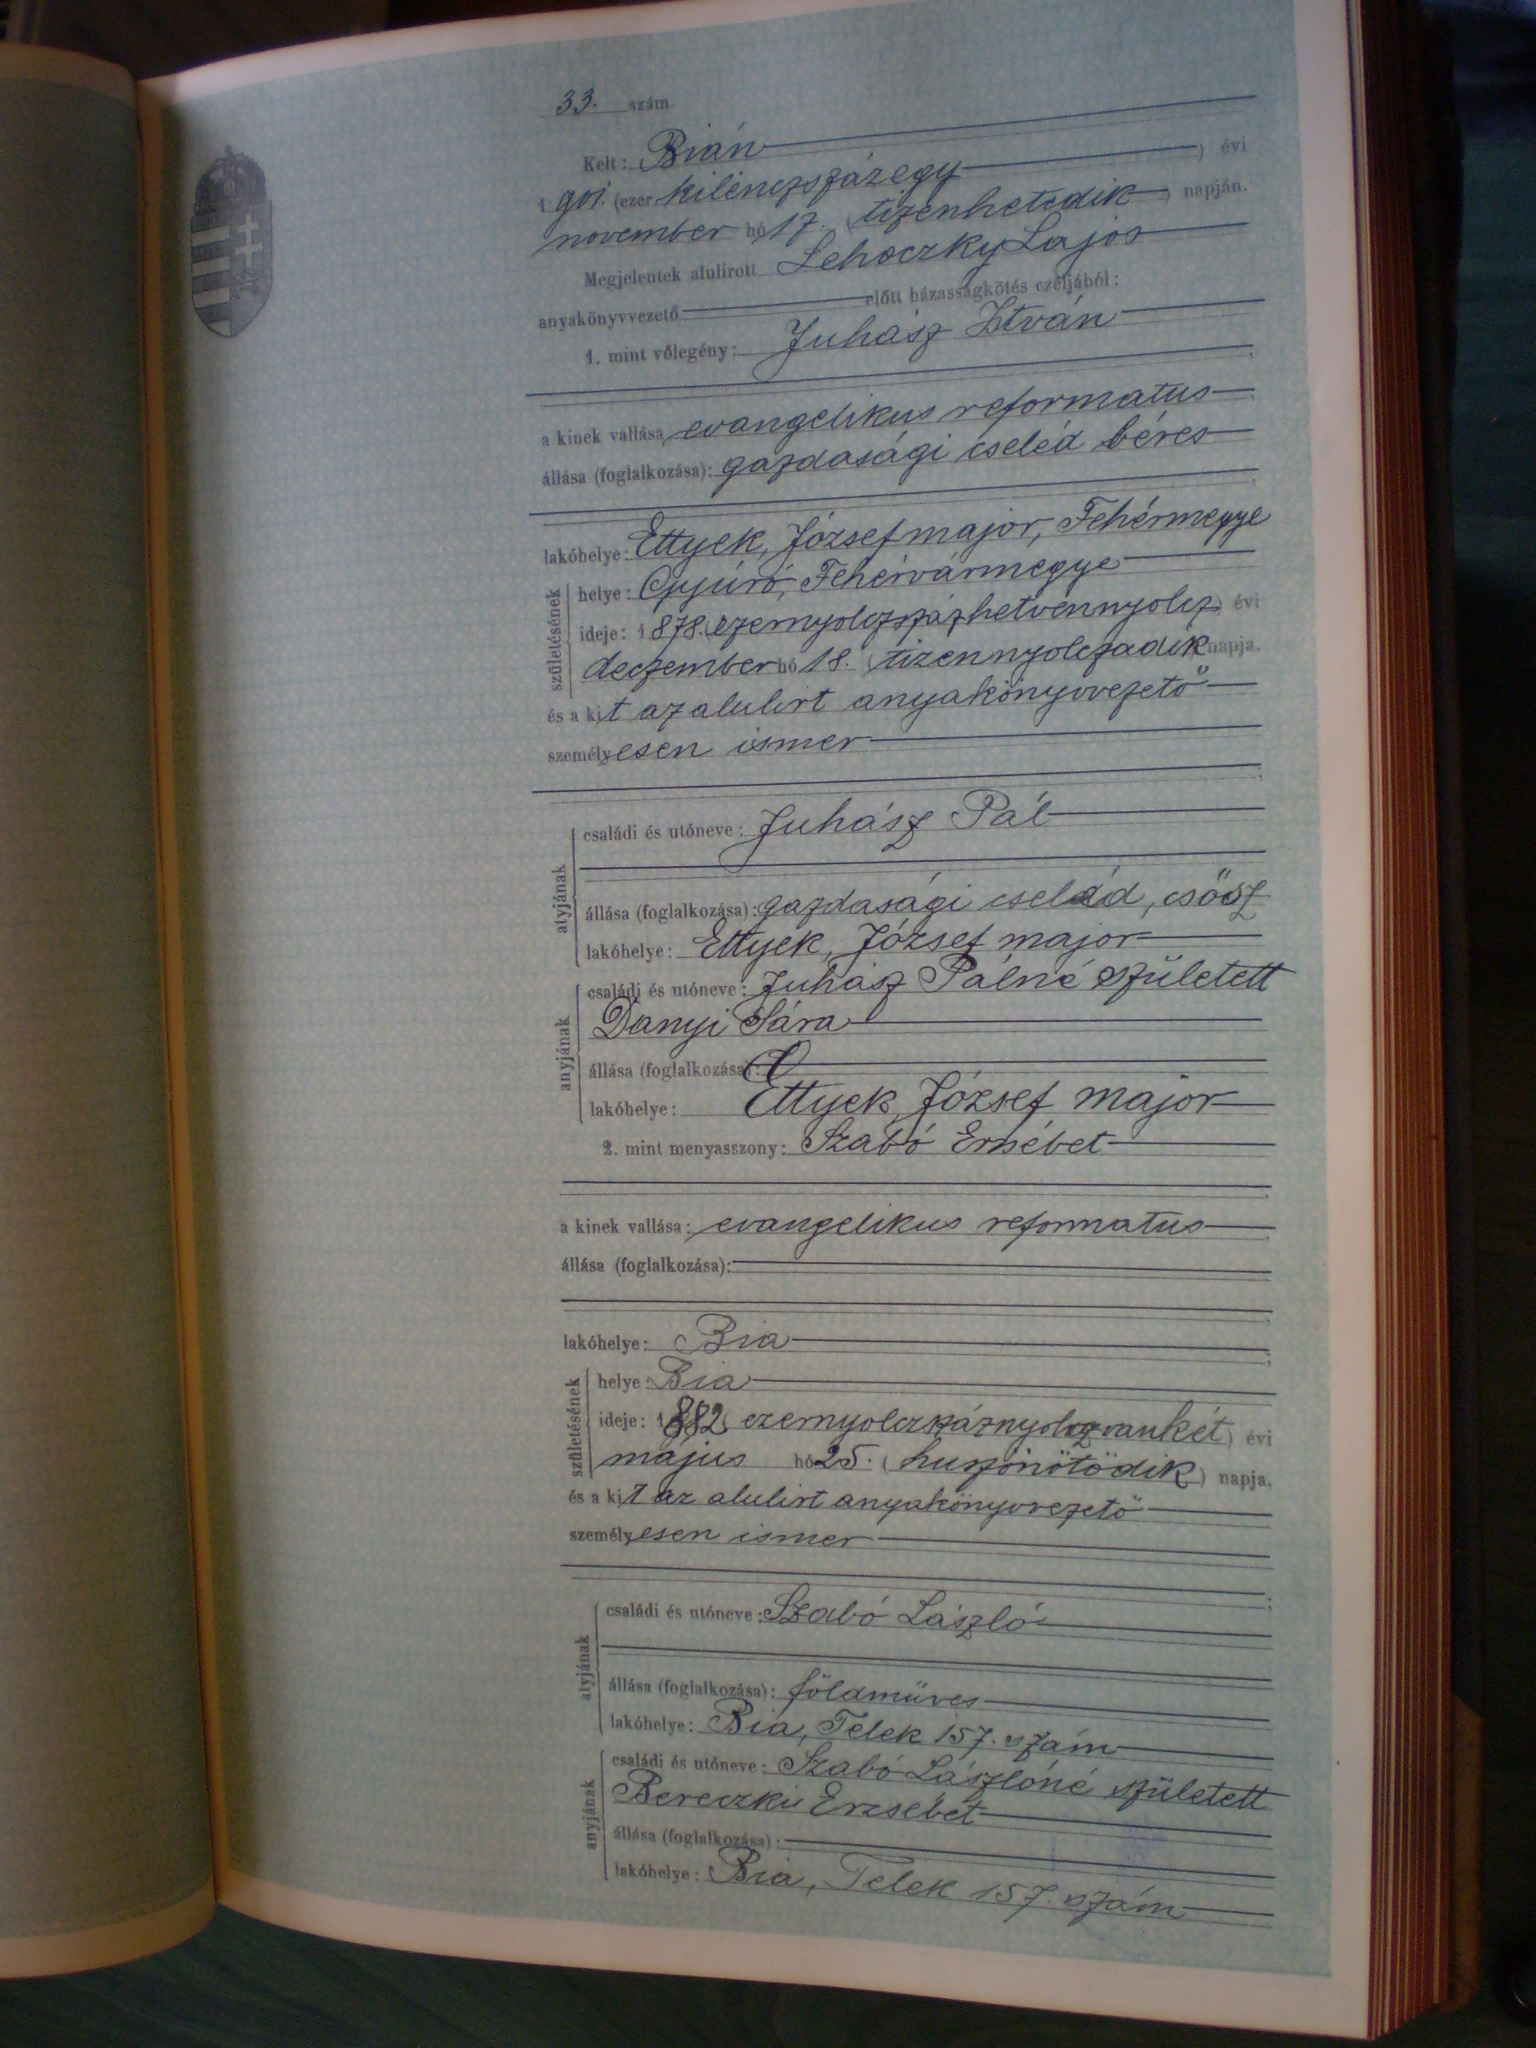 33. szám.
Kelt: Bián
1901. (ezerkilenczszázegy) évi
november hó 17. (tizenhetedik) napján.
Megjelentek alulirott Lehoczky Lajos
anyakönyvvezető előtt házasságkötés czéljából:
1. mint vőlegény: Juhász István
a kinek vallása evangelikus reformatus
állása (foglalkozása): gazdasági cseléd béres
lakóhelye: Ettyek, József major, Fehérmegye
születésének
helye: Gyúró, Fehérvármegye
ideje: 1878. (ezernyolczszázhetvennyolcz) évi
deczember hó 18. (tizennyolczadik) napja.
és a kit az alulirt anyakönyvvezető
személyesen ismer
atyjának
családi és utóneve: Juhász Pál
állása (foglalkozása): gazdasági cseléd, csősz
lakóhelye: Ettyek, József major
anyjának
családi és utóneve: Juhász Pálné született
Danyi Sára
állása (foglalkozása):
lakóhelye: Ettyek, József major
2. mint menyasszony: Szabó Erzsébet
a kinek vallása: evangelikus reformatus
állása (foglalkozása):
lakóhelye: Bia
születésének
helye: Bia
ideje: 1882 (ezernyolczszáznyolczvankét) évi
május hó 25. (huszonötödik) napja,
és a kit az alulirt anyakönyvvezető
személyesen ismer
atyjának
családi és utóneve: Szabó László
állása (foglalkozása): földmüves
lakóhelye: Bia, Telek 157. szám
anyjának
családi és utóneve: Szabó Lászlóné született
Bereczki Erzsébet
állása (foglalkozása):
lakóhelye: Bia, Telek 157. szám